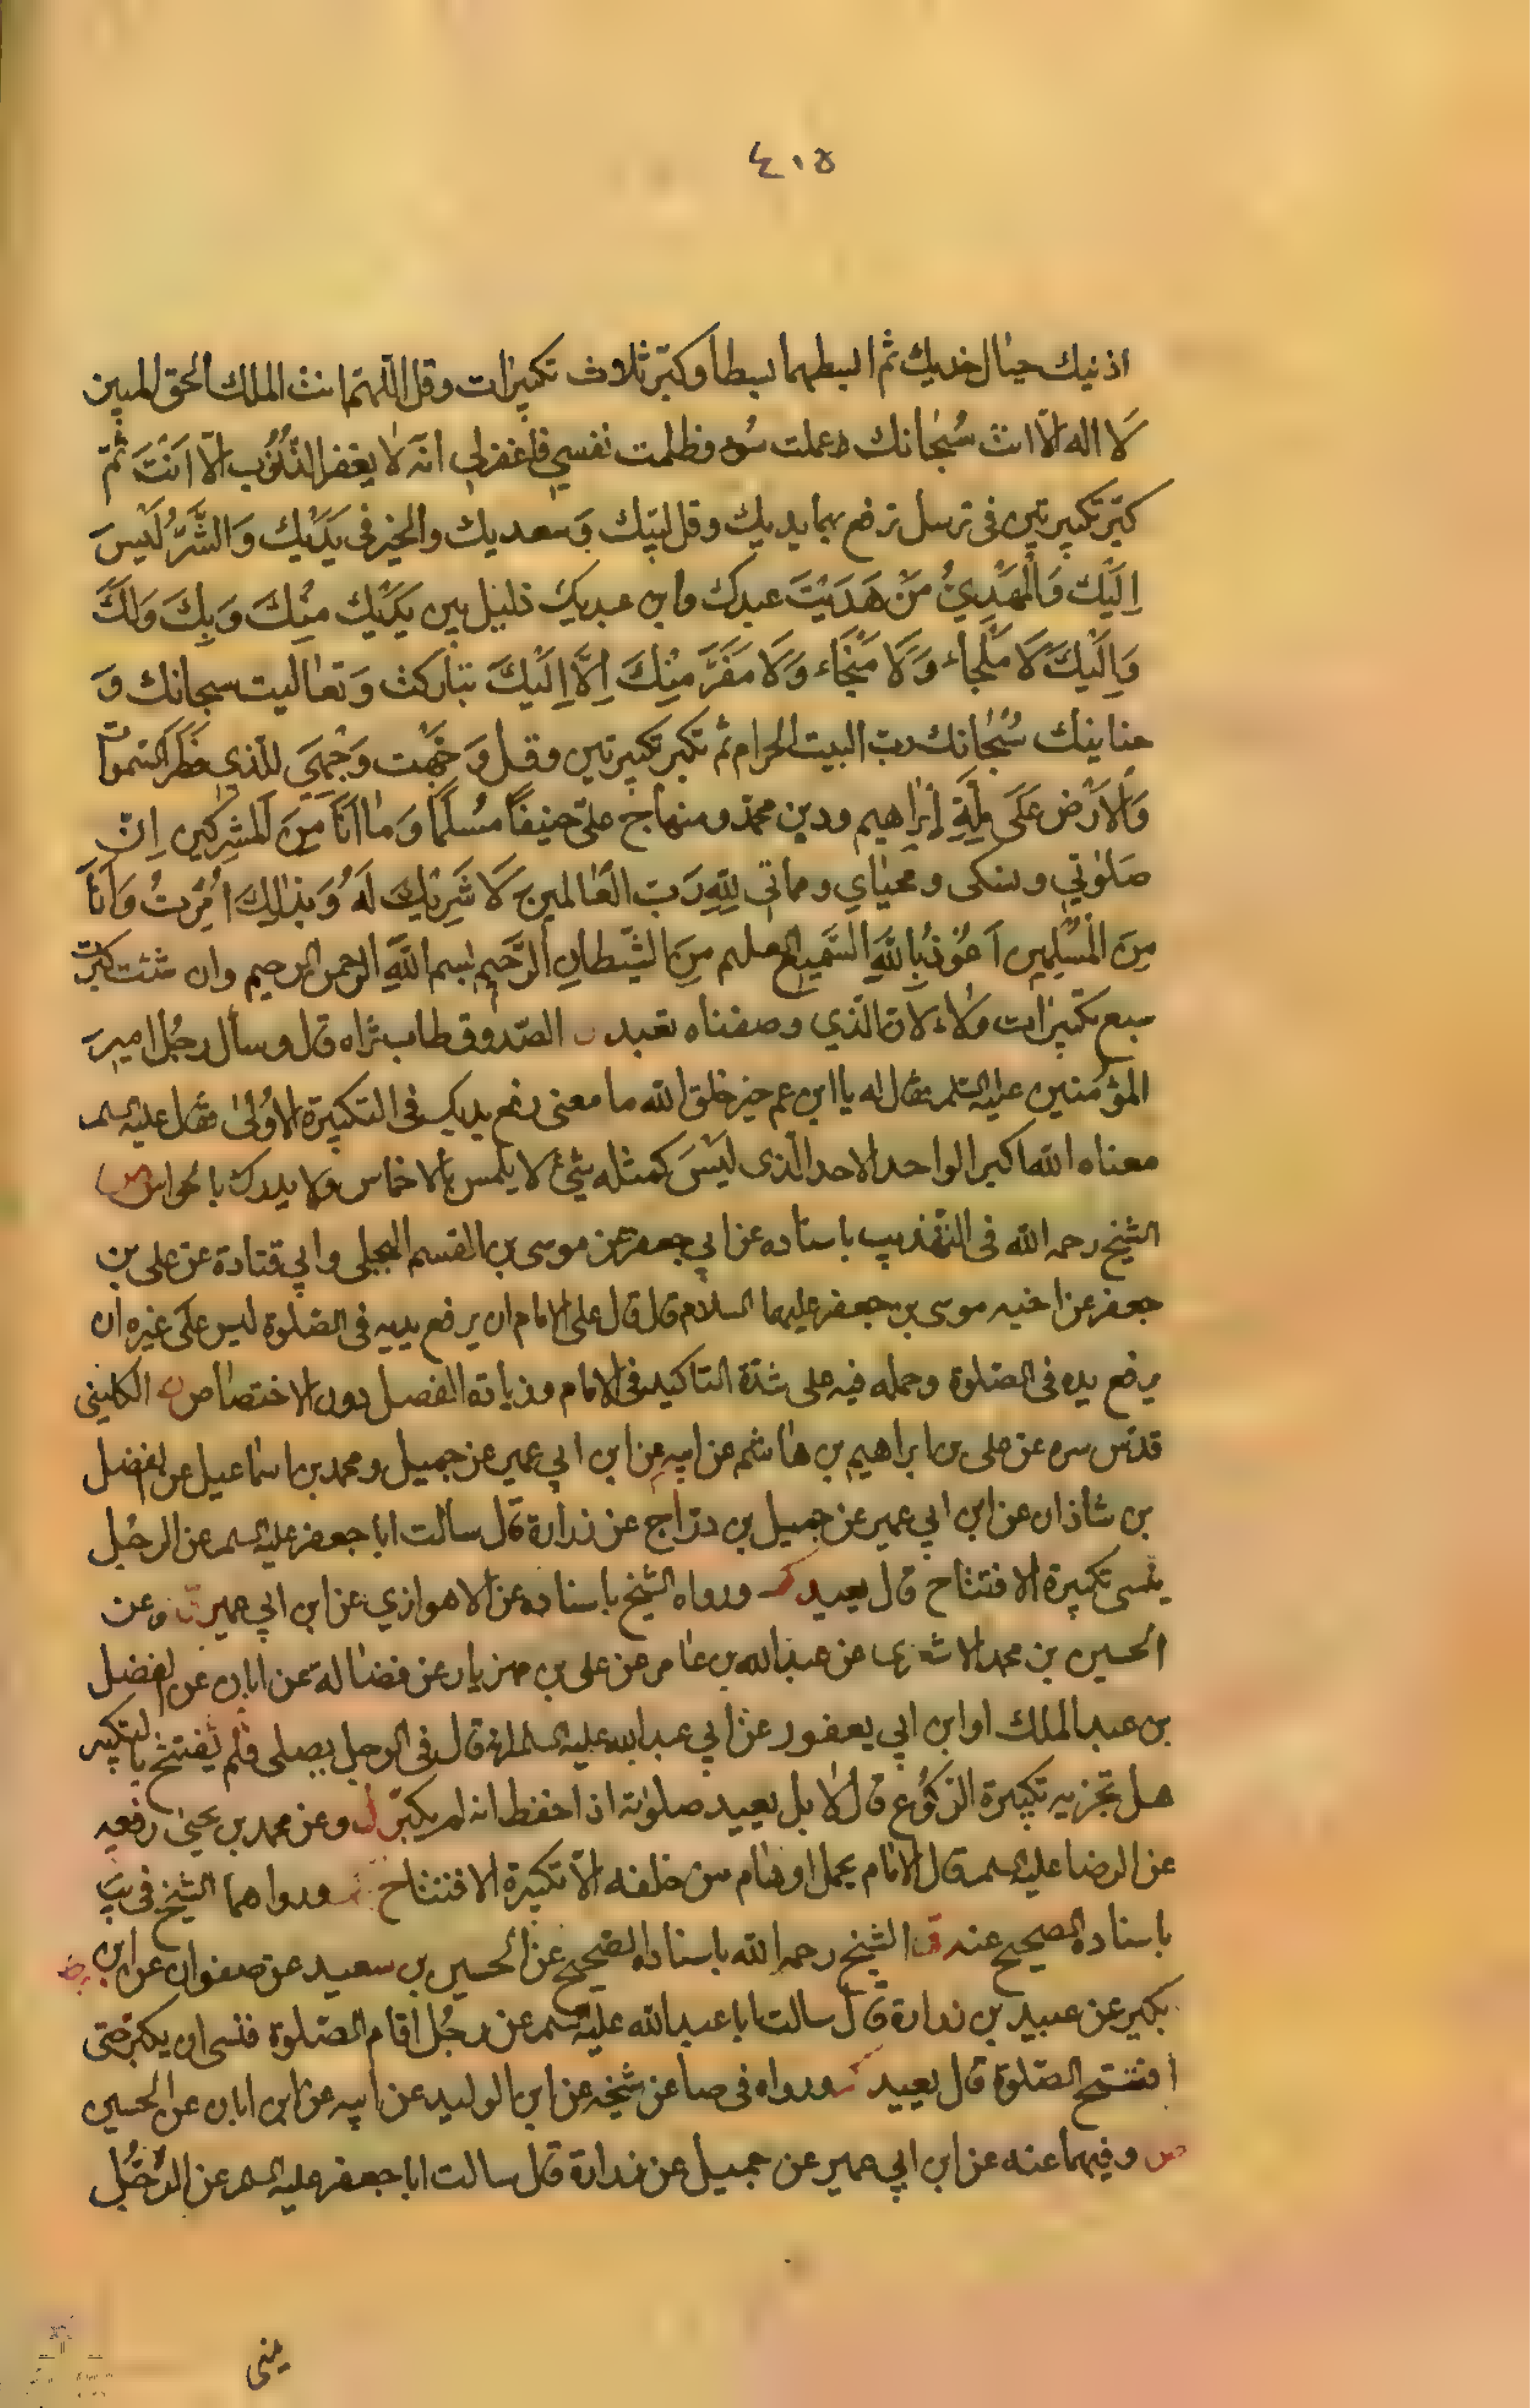 ٤١٥
اذنيك حيال خديك ثم ابسطهما بسطا وكبّر ثلاث تكبيرات وقل اللّهمّ انت الملك الحق المبين
لَا اله الّا انت سُبْحَانك عملت سُوء وظلمت نفسي فاغفر لي انّه لا يغفر الذّنُوب الّا اَنتَ ثمّ
كبّر تكبيرتين فى ترسل ترفع بهما يديك وقل لبّيك وَسعديك والخير فى يَدَيْك وَالشَّرُّ لَيْسَ
اِلَيْك وَالْمَهْدِيُّ مَنْ هَدَيْتَ عبدك وابن عبديك ذليل بين يَدَيْك مِنْكَ وَبِكَ وَلَكَ
وَاِلَيْكَ لَا مَلْجَاء وَلَا مَنْجَاء وَلَا مَفَرَّ مِنْكَ اِلَّا اِلَيْكَ تباركت وَتعاليت سبحانك وَ
حنانيك سُبْحَانك ربّ البيت الحرام ثم تكبر تكبيرتين وقل وَجَّهْت وَجْهِيَ للّذي فَطَرَ السّموات
وَالْاَرْض عَلَى مِلَّةِ اِبْرَاهيم ودين محمّد ومنهاج علىّ حنيفًا مُسْلمًا وَمَا اَنَا مِنَ الْمُشركين اِنّ
صَلوتي ونسكى ومحيَاي ومماتي لِلّهِ رَبّ الْعَالمين لَا شَرِيْكَ لَهُ وَبذٰلِكَ اُمِرْتُ وَاَنَا
مِنَ الْمُسْلِمِين اَعُوْذُ بِاللّهِ السَّمِيع العليم مِنَ الشَّيْطَانِ الرَّجِيم بسم اللّهِ الرحمن الرحيم وان شئت كبّرت
سبع تكبيرات ولاء لانّ الّذي وصفناه تعبد الصّدوق طاب ثراه قال وسأل رجُل امير
المؤمنين عليه السّلم فقال له يا ابن عم خير خلق اللّه ما معنى رفع يديك فى التكبيرة الاُولى فقال عليه السلم
معناه اللّه اكبر الواحد الاحد الّذى لَيْسَ كمثله شَيْء لا يلمس بالاخماس ولا يدرك بالحواس
الشّيخ رحمه اللّه فى التّهذيب باسناده عن ابي جعفر عن موسى بن القسم البجلى وابي قتادة عن على بن
جعفر عن اخيه موسى بن جعفر عليهما السلام قال قال على الامام ان يرفع يديه فى الصّلوة ليس عَلى غيره ان
يرفع يده فى الصّلوة وحمله فيه على شدّة التاكيد فى الامام وزيادة الفضل دون الاختصاص الكلينى
قدّس سره عن على بن ابراهيم بن هاشم عن ابيه عن ابن ابي عمير عن جميل ومحمد بن اسماعيل عن الفضل
بن شاذان عن ابن ابي عمير عن جميل بن درّاج عن زرارة قال سالت ابا جعفر عليه السلم عن الرجُل
ينسى تكبيرة الافتتاح قال يعيد ورواه الشّيخ باسناده عن الاهوازي عن ابن ابي عمير وعن
الحسين بن محمد الاشعرى عن عبدالله بن عامر عن على بن مهزيار عن فضالة عن ابان عن الفضل
بن عبدالملك او ابن ابي يعفور عن ابي عبدالله عليه السلم انه قال فى الرجل يصلى فلم يفتتح بالتكبير
هل تجزيه تكبيرة الرّكوُع قال لا بل يعيد صلوته اذا حفظ انه لم يكبّر وعن محمد بن يحيى رفعه
عن الرضا عليه السلم قال الامام يحمل اوهام من خلفه الّا تكبيرة الافتتاح ورواهما الشّيخ فى يبَ
باسناده الصحيح عنه الشّيخ رحمه اللّه باسناده الصّحيح عن الحسين بن سعيد عن صفوان عن ابن
بكير عن عبيد بن زرارة قال سالت ابا عبدالله عليه السلم عن رجُل اقام الصّلوة فنسى ان يكبّر حتى
افتتح الصّلوة قال يعيد ورواه فى صا عن شيخه عن ابن الوليد عن ابيه عن ابن ابان عن الحسين
وفيهما عنه عن ابن ابي عمير عن جميل عن زرارة قال سالت ابا جعفر عليه السلم عن الرّجُل
ينسى